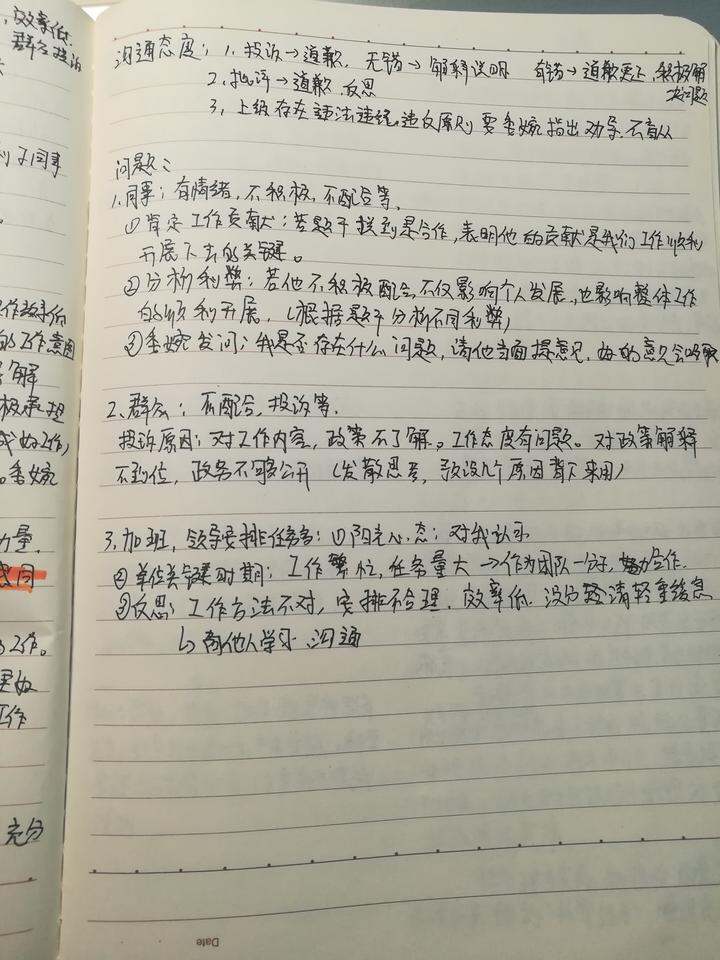 ，效率低.
群众投诉
沟通态度：1. 投诉→道歉，无错→解释说明 有错→道歉更正，积极解
决问题
2. 批评→道歉.反思
3. 上级存在违法违规.违反原则 要委婉指出劝导.不盲从
同事
问题：
1.同事：有情绪，不积极，不配合等.
①肯定工作贡献：若题干提到是合作，表明他的贡献是我们工作顺利
开展下去的关键。
②分析利弊：若他不积极配合，不仅影响个人发展，也影响整体工作
的顺利开展. （根据题干分析不同利弊）
③委婉发问：我是否存在什么问题，请他当面提意见，好的意见会吸取
作效率低
的工作意图
解
极承担
好工作，
。委婉
2.群众：不配合，投诉等.
投诉原因：对工作内容，政策不了解。工作态度有问题。对政策解释
不到位，政务不够公开（发散思考，预设几个原因背下来用）
力量.
3.加班，领导安排任务多：①阳光心态：对我认可
②单位关键时期：工作繁忙，任务量大→作为团队一份子，努力合作.
③反思：工作方法不对，安排不合理.效率低.没分清轻重缓急
↳向他人学习.沟通
工作。
工作
充分
Date